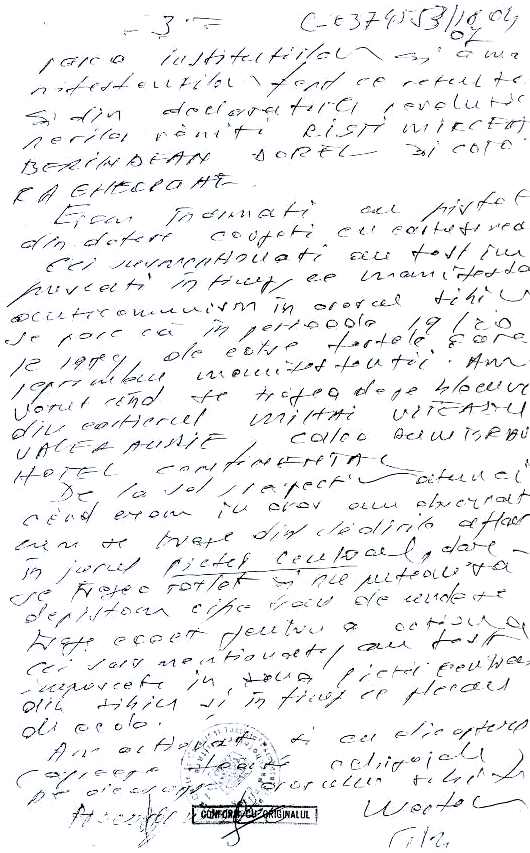 - 3 -
paza instituțiilor și a ma
nifestanților fapt ce rezultă
și din declarațiile revoluțio
narilor răniți RISTI MIRCEA
BERINDEAN DOREL și COTO
RA GHEORGHE.
Eram înarmați cu pistol
din dotare
Cei susmenționați au fost îm
pușcați în timp ce manifestau
anticomunism în orașul Sibiu
se pare că în perioada 19/20
12 1989, de către forțele care
reprimau manifestanții. Am
văzut când se trăgea de pe blocuri
din cartierul MIHAI VITEAZU
VALEA AURIE, calea DUMBRĂVII
HOTEL CONTINENTAL
De la sol respectiv atunci
când eram în oraș am observat
cum se trage din clădirile aflate
în jurul pieței centrale, dare
se trăgea și nu puteam să
depistăm de unde se
trage exact pentru a acționa
Cei sus menționați au fost
împușcați în zona pieței centrale
din Sibiu și în timp ce plecau
de acolo.
Am acționat și cu elicopterul
pe orașului Sibiu
CONFORM CU ORIGINALUL